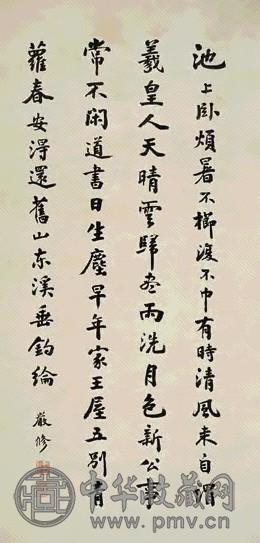 池上臥煩暑不櫛復不巾有時清風來自謂
羲皇人天晴雲歸盡雨洗月色新公事
常不閑道書日生塵早年家王屋五別青
蘿春安得還舊山東溪垂釣綸
嚴修
中华收藏网
www.pmv.cn